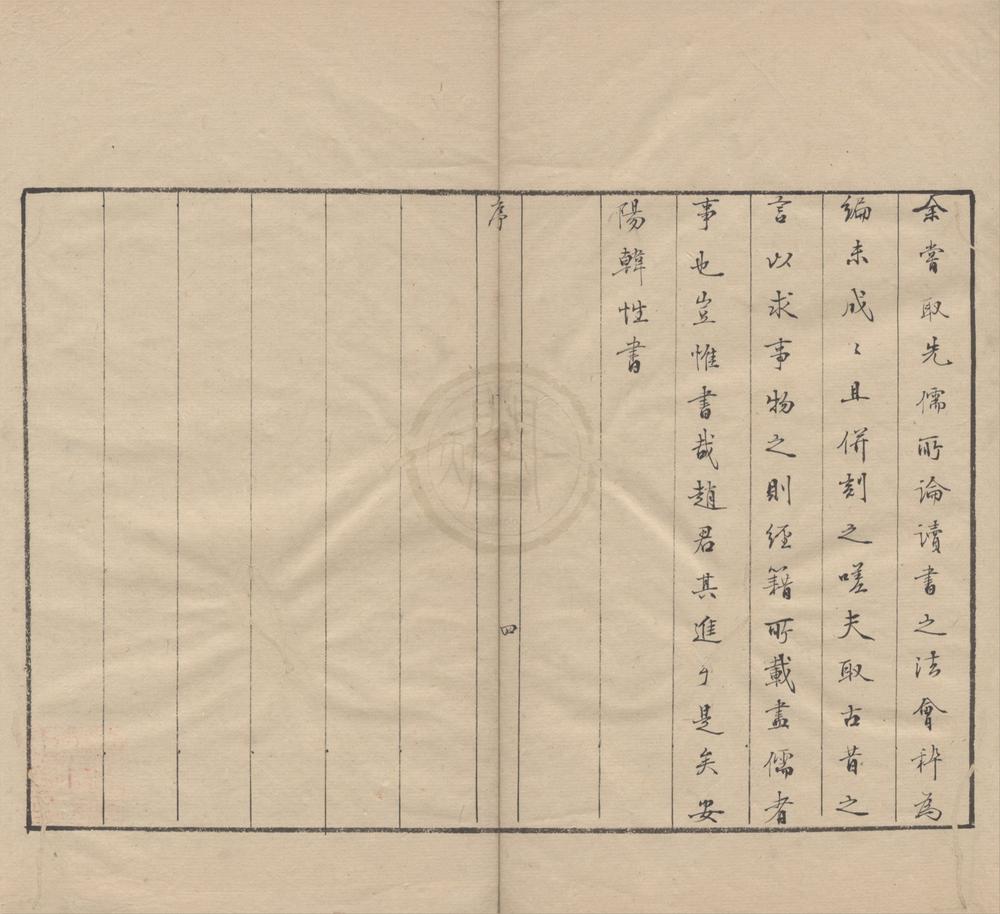 余嘗取先儒所論讀書之法會稡為
編未成〻且併刻之嗟夫取古昔之
言以求事物之則經籍所載盡儒者
事也豈惟書哉趙君其進于是矣安
陽韓性書
序
四